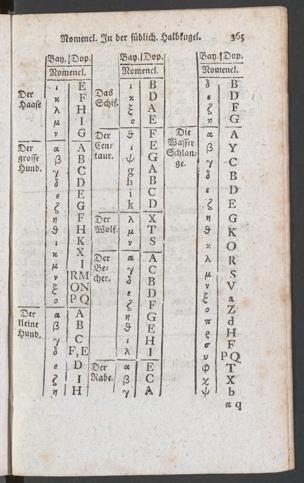 Nomencl. In der südlich. Halbkugel. 365
Bay. Dop.
Nomencl.
Der ι E
Haase κ F
λ H
μ I
ν G
Der α A
grosse β B
Hund. γ C
δ D
ε E
ζ G
η F
ϑ H
ι K
κ X
λ I
μ RM
ν ON
ξ P Q
ο
Der α A
kleine β B
Hund. γ C
δ F, E
ε D
ζ I
η H
Bay. Dop.
Nomencl.
Das ι B
Schif. κ D
ξ A
ο E
Der ϑ F
Cen- ι E
taur. ψ G
g A
h B
i C
k D
Der λ X
Wolf. μ T
ν S
Der α A
Be- γ C
cher. δ B
ε D
ζ F
η G
ϑ E
ι H
λ I
Der α E
Rabe. β C
γ A
Bay. Dop.
Nomencl.
δ B
ε D
ζ F
η G
Die α A
Wasser β Y
Schlan- γ C
ge. δ B
ε D
ζ E
η G
ϑ K
ι O
κ R
λ S
μ V
ν a
ξ Z
ο d
π H
ρ F
σ P Q
υ T
φ X
χ b
ψ a q